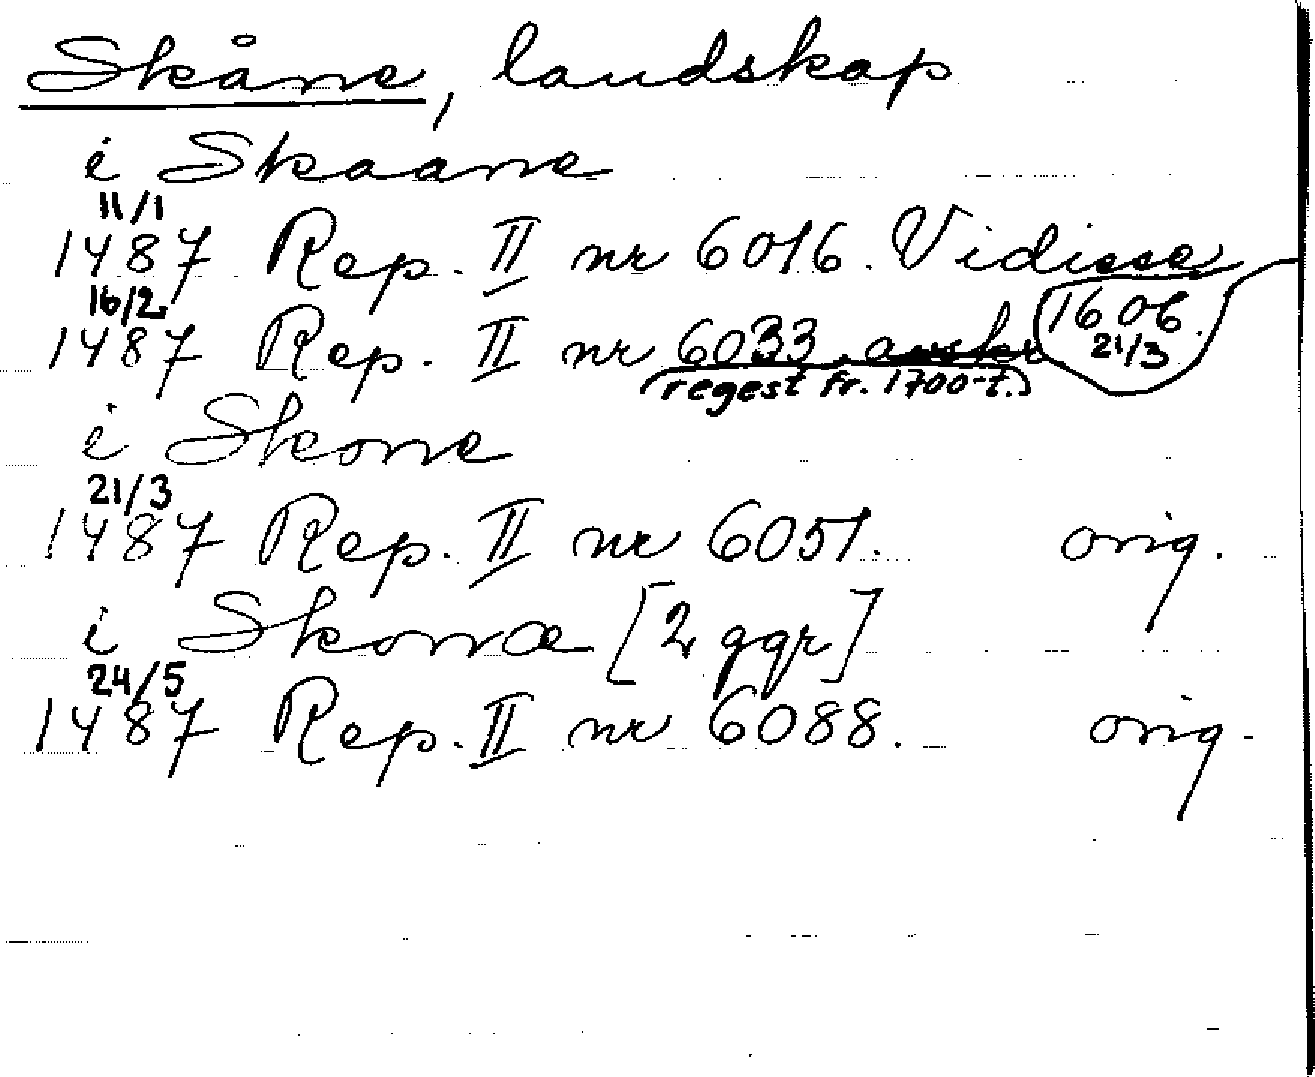 Skåne, landskap
i Skaane
11/1
1487 Rep. II nr 6016. Vidisse
1606. 21/3
16/2
1487 Rep. II nr 6033. avskr
(regest fr. 1700-t.)
i Skone
21/3
1487 Rep. II nr 6051. orig.
i Skonæ [2 ggr]
24/5
1487 Rep. II nr 6088. orig.